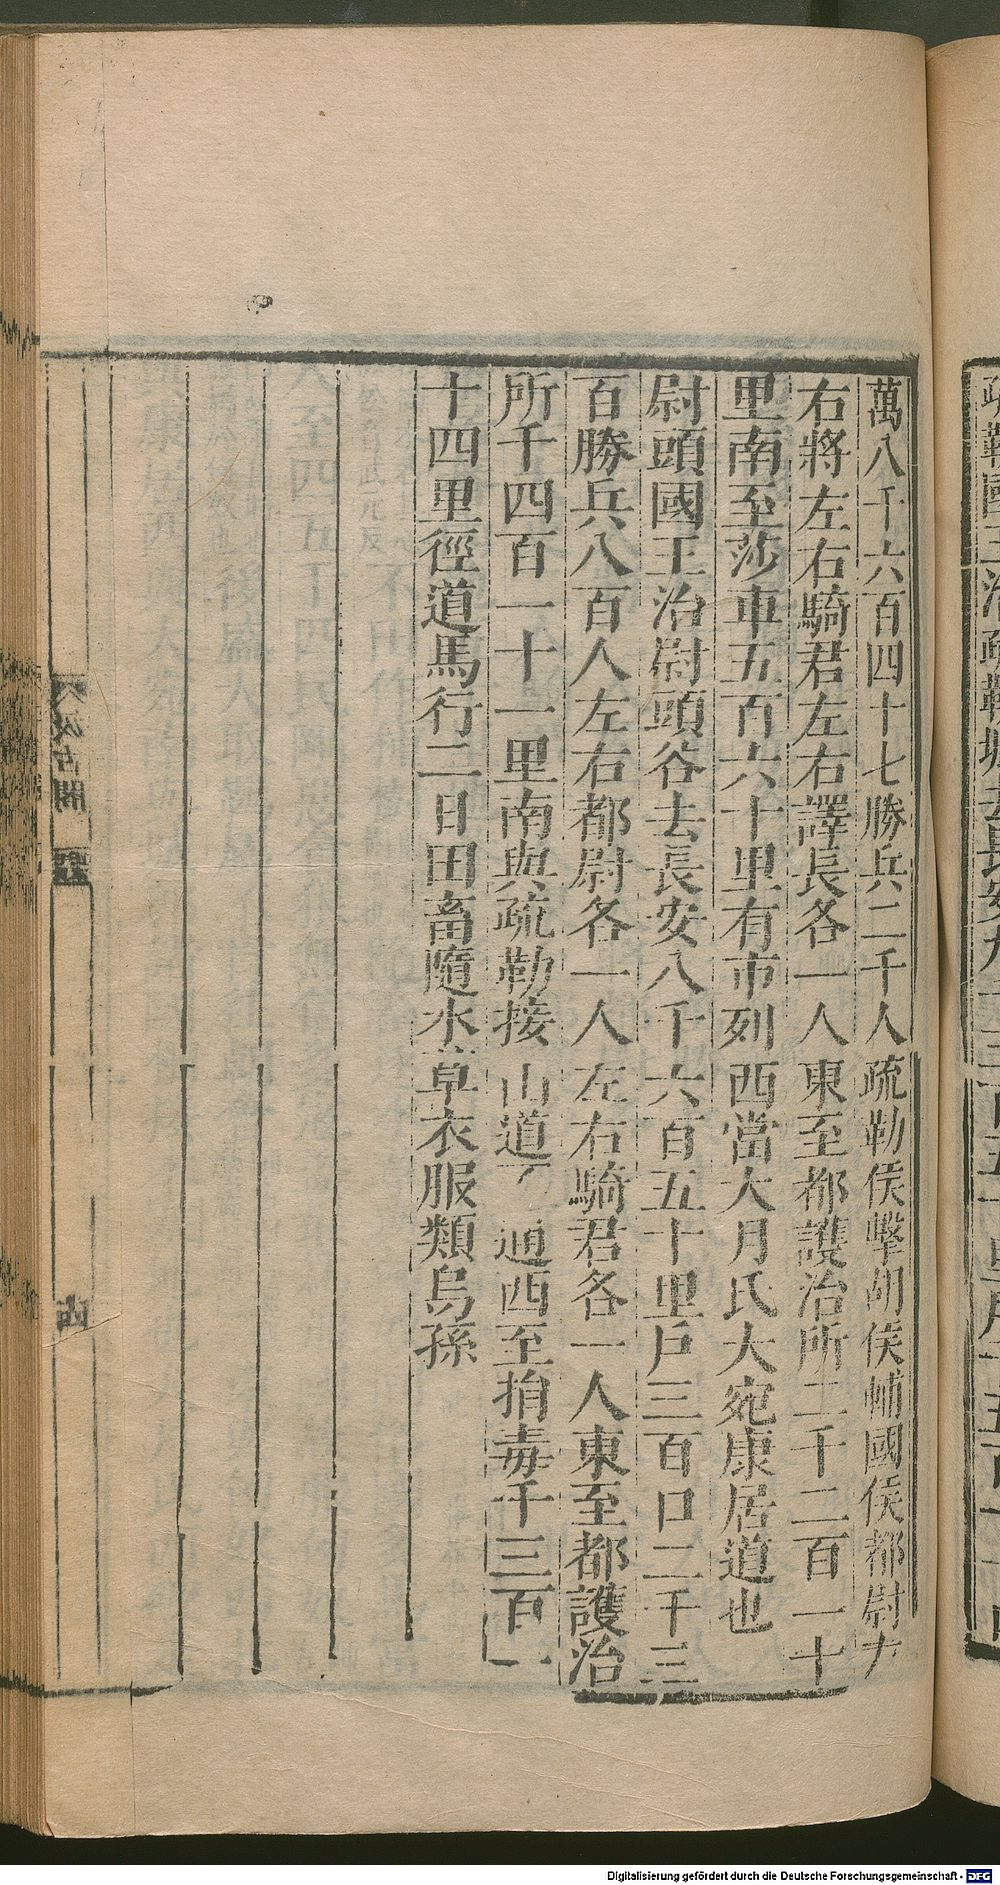 疏勒國王治疏勒城去長安九千三百五十里戶千五百一十口
萬八千六百四十七勝兵二千人疏勒侯擊胡侯輔國侯都尉左
右將左右騎君左右譯長各一人東至都護治所二千二百一十
里南至莎車五百六十里有市列西當大月氏大宛康居道也
尉頭國王治尉頭谷去長安八千六百五十里戶三百口二千三
百勝兵八百人左右都尉各一人左右騎君各一人東至都護治
所千四百一十一里南與疏勒接山道不通西至捐毒千三百一
十四里徑道馬行二日田畜隨水草衣服類烏孫
Digitalisierung gefördert durch die Deutsche Forschungsgemeinschaft - DFG